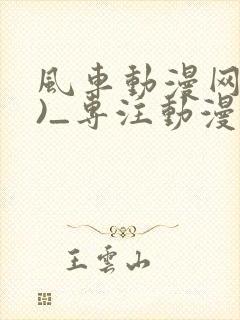 風車動漫网
)_專注動漫
王雲山